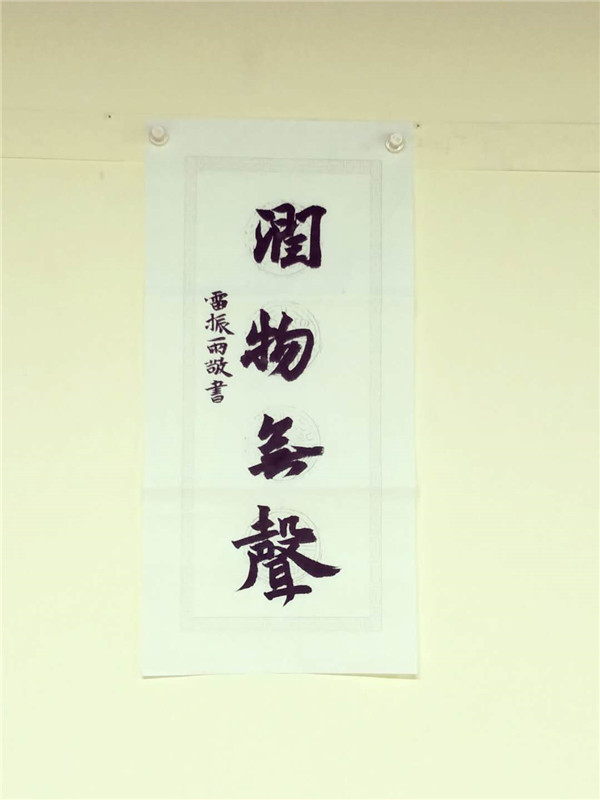 潤物無聲
雷振雨敬書